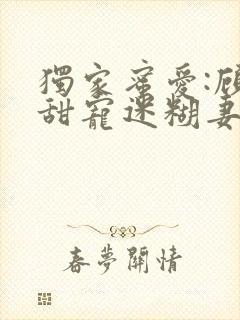 獨家蜜愛:顧
甜寵迷糊妻
春夢關情